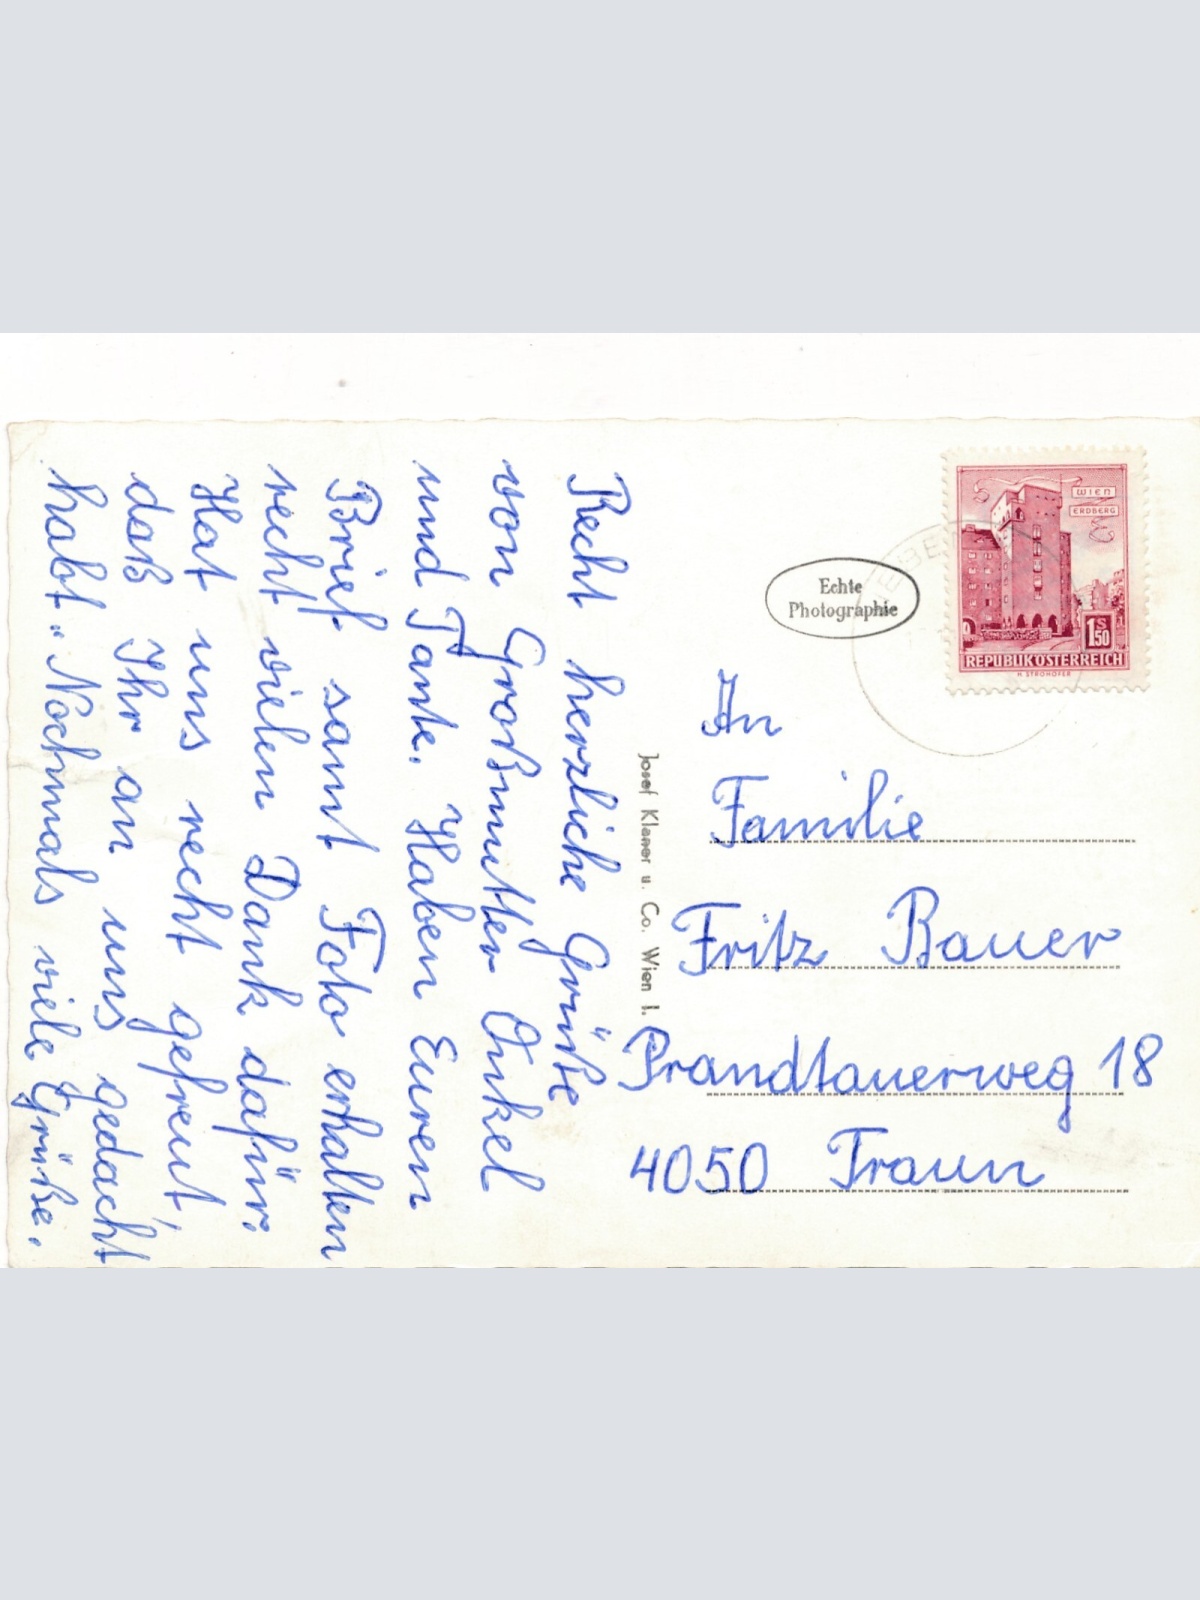 Recht herzliche Grüße
von Großmutter Onkel
und Tante. Haben Euren
Brief samt Foto erhalten
recht vielen Dank dafür.
Hat uns recht gefreut,
daß Ihr an uns gedacht
habt. Nochmals viele Grüße.
Josef Klaner u. Co. Wien I.
Echte
Photographie
WIEN
ERDBERG
1S50
REPUBLIK ÖSTERREICH
H. STROHOFER
An
Familie
Fritz Bauer
Prandtauerweg 18
4050 Traun